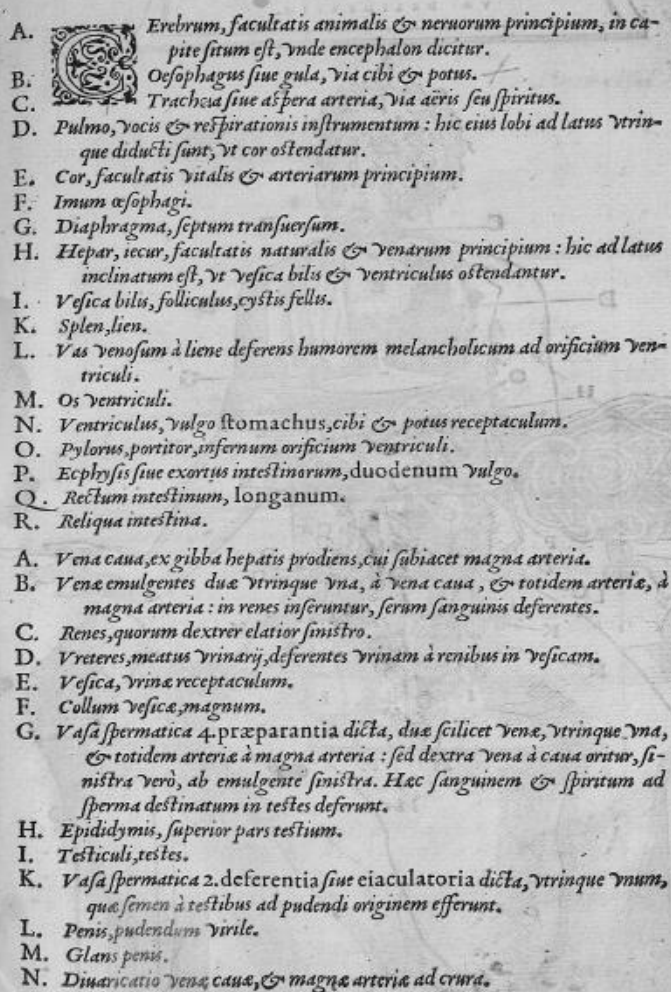 A. CErebrum, facultatis animalis & neruorum principium, in ca-
pite situm est, vnde encephalon dicitur.
B. Oesophagus siue gula, via cibi & potus.
C. Trachæa siue aspera arteria, via aëris seu spiritus.
D. Pulmo, vocis & respirationis instrumentum : hic eius lobi ad latus vtrin-
que diducti sunt, vt cor ostendatur.
E. Cor, facultatis vitalis & arteriarum principium.
F. Imum œsophagi.
G. Diaphragma, septum transuersum.
H. Hepar, iecur, facultatis naturalis & venarum principium : hic ad latus
inclinatum est, vt vesica bilis & ventriculus ostendantur.
I. Vesica bilis, folliculus, cystis fellis.
K. Splen, lien.
L. Vas venosum à liene deferens humorem melancholicum ad orificium ven-
triculi.
M. Os ventriculi.
N. Ventriculus, vulgo stomachus, cibi & potus receptaculum.
O. Pylorus, portitor, infernum orificium ventriculi.
P. Ecphysis siue exortus intestinorum, duodenum vulgo.
Q. Rectum intestinum, longanum.
R. Reliqua intestina.
A. Vena caua, ex gibba hepatis prodiens, cui subiacet magna arteria.
B. Venæ emulgentes duæ vtrinque vna, à vena caua, & totidem arteriæ, à
magna arteria : in renes inseruntur, serum sanguinis deferentes.
C. Renes, quorum dextrer elatior sinistro.
D. Vreteres, meatus vrinarij, deferentes vrinam à renibus in vesicam.
E. Vesica, vrinæ receptaculum.
F. Collum vesicæ, magnum.
G. Vasa spermatica 4. præparantia dicta, duæ scilicet venæ, vtrinque vna,
& totidem arteriæ à magna arteria : sed dextra vena à caua oritur, si-
nistra verò, ab emulgente sinistra. Hæc sanguinem & spiritum ad
sperma destinatum in testes deferunt.
H. Epididymis, superior pars testium.
I. Testiculi, testes.
K. Vasa spermatica 2. deferentia siue eiaculatoria dicta, vtrinque vnum,
quæ semen à testibus ad pudendi originem efferunt.
L. Penis, pudendum virile.
M. Glans penis.
N. Diuaricatio venæ cauæ, & magnæ arteriæ ad crura.